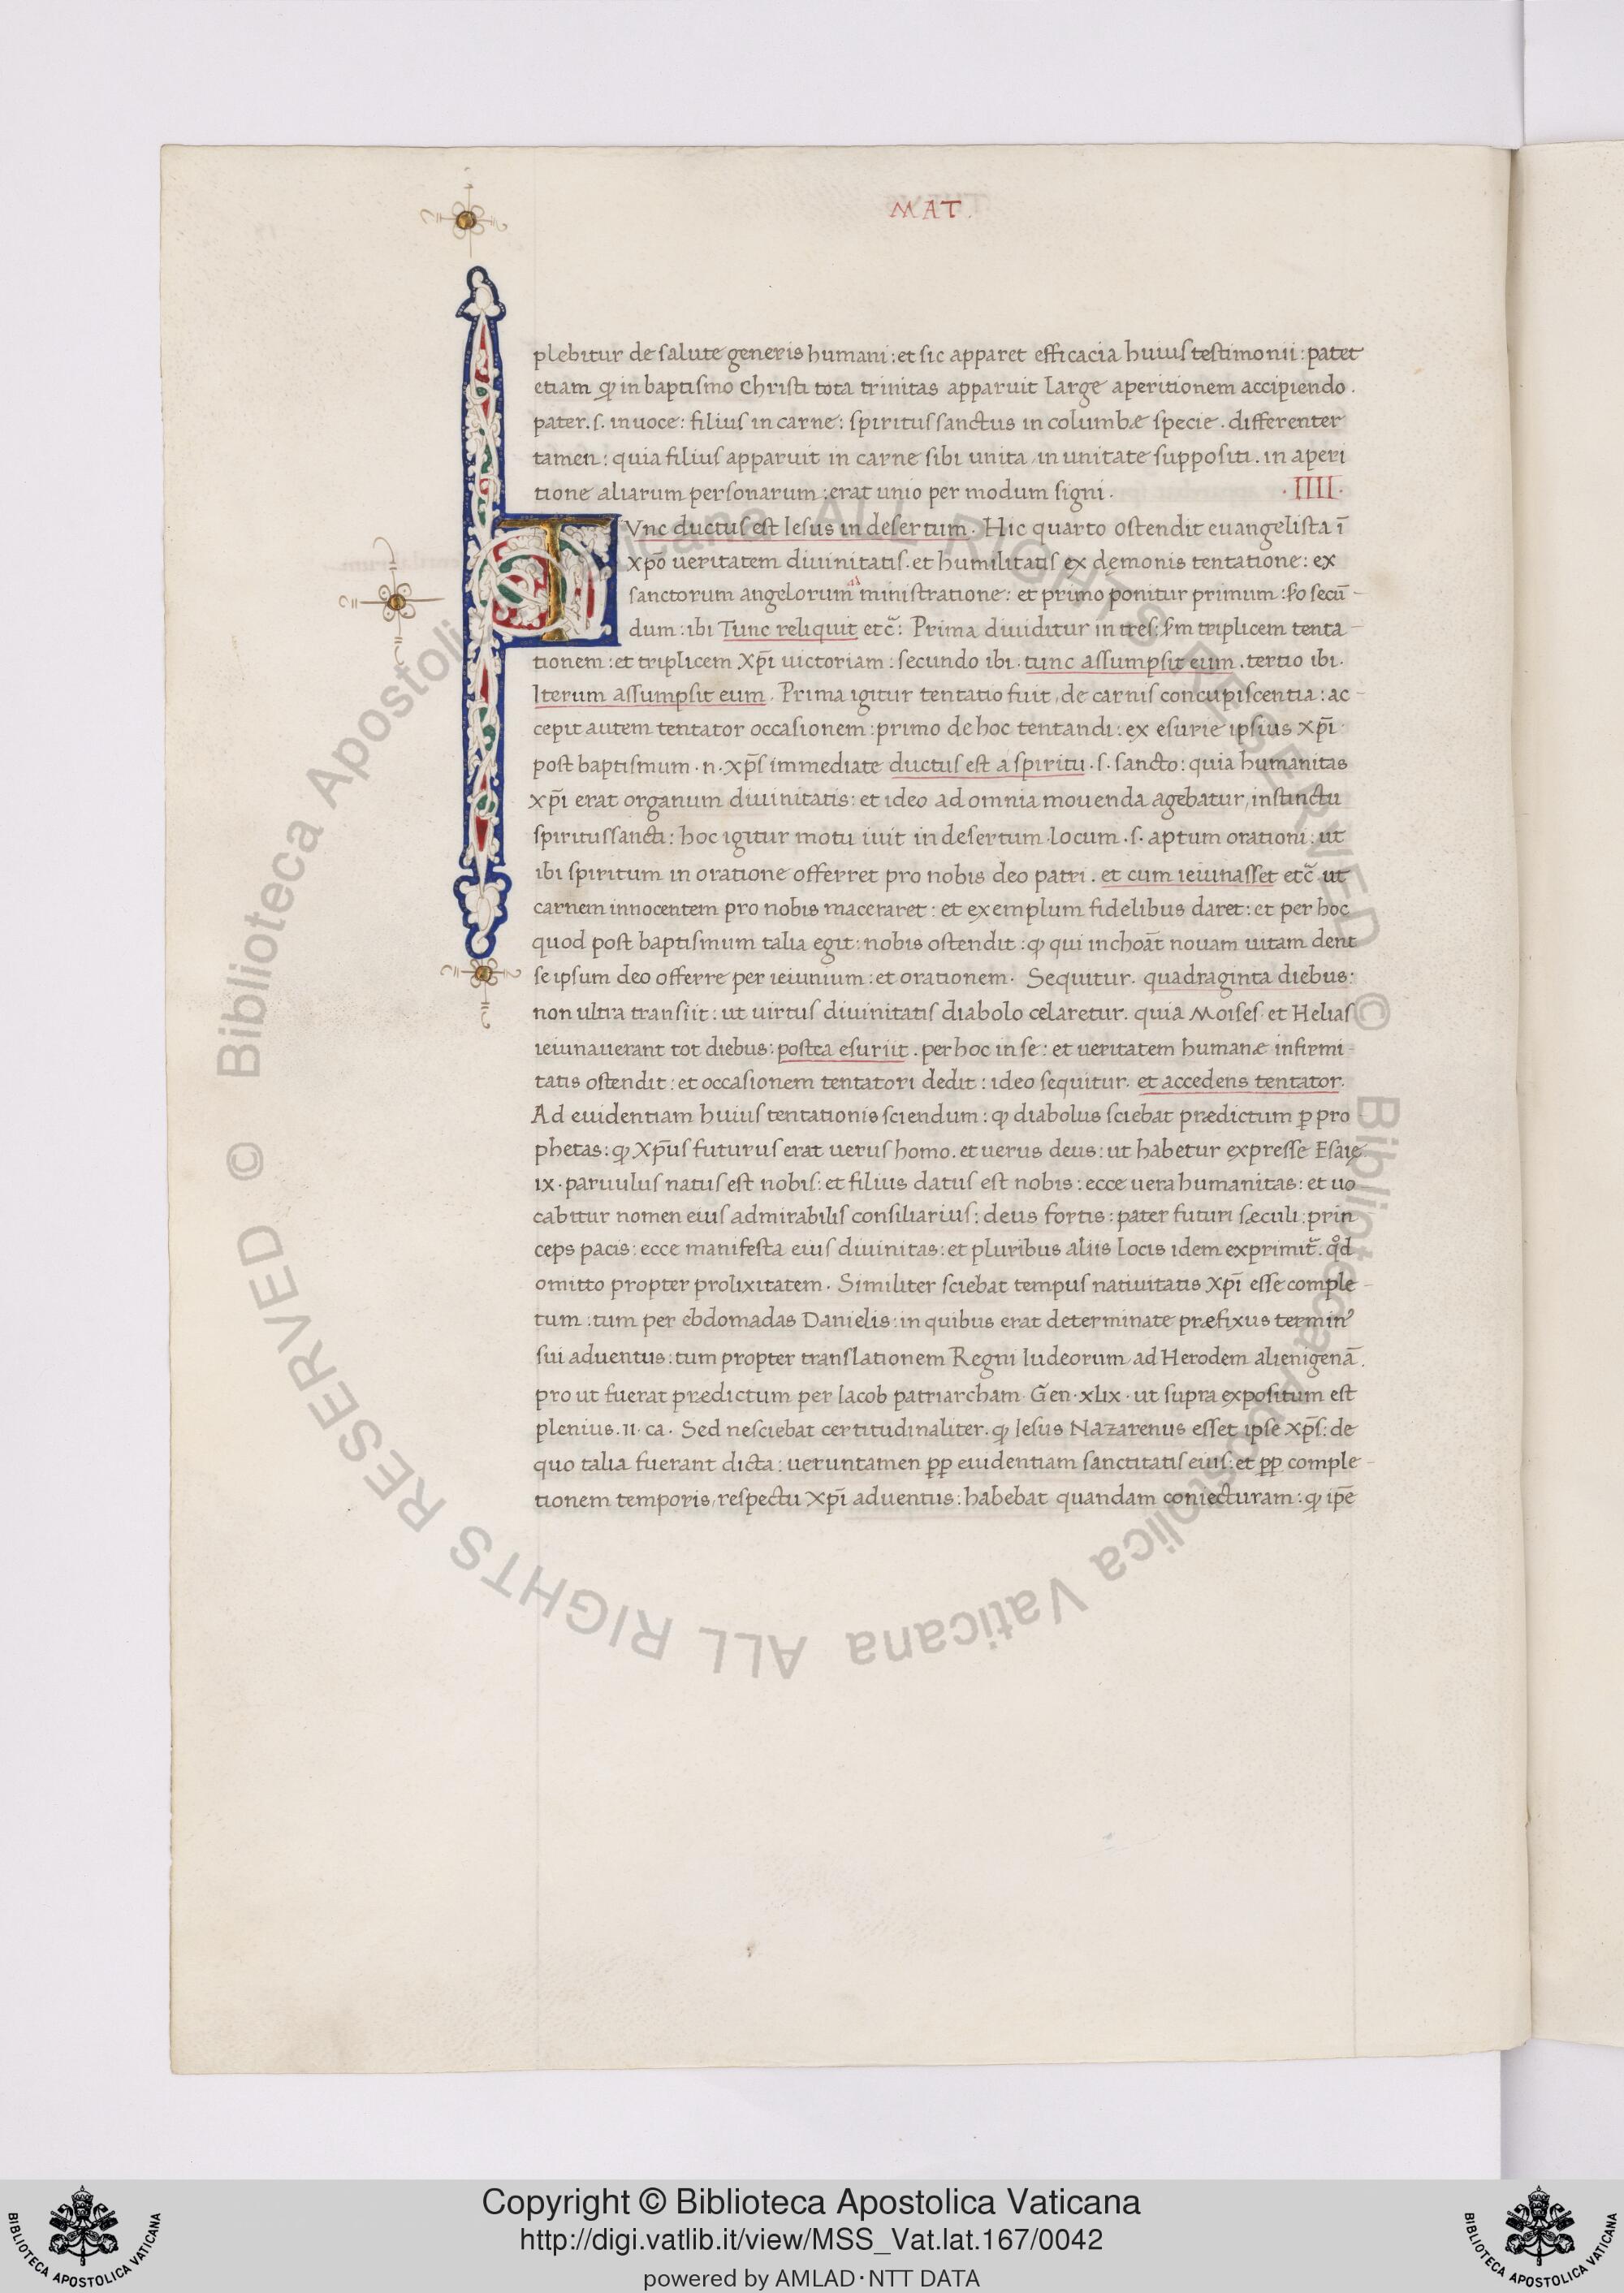 MAT.
plebitur de salute generis humani: et sic apparet efficacia huius testimonii: patet
etiam ꝙ in baptismo Christi tota trinitas apparuit large aperitionem accipiendo.
pater .s. in uoce: filius in carne: spiritus sanctus in columbæ specie. differenter
tamen: quia filius apparuit in carne sibi unita, in unitate suppositi. in aperi
tione aliarum personarum: erat unio per modum signi. .IIII.
TVnc ductus est Iesus in desertum. Hic quarto ostendit euangelista ī
xp̄o ueritatem diuinitatis. et humilitatis ex demonis tentatione: ex
sanctorum angelorum ministratione: et primo ponitur primum: secū-
dum: ibi Tunc reliquit etc̃: Prima diuiditur in tres: triplicem tenta-
tionem: et triplicem Xp̄i uictoriam: secundo ibi. tunc assumpsit eum. tertio ibi.
Iterum assumpsit eum. Prima igitur tentatio fuit, de carnis concupiscentia: ac-
cepit autem tentator occasionem: primo de hoc tentandi: ex esurie ipsius xp̄i
post baptismum .n. xp̄s immediate ductus est a spiritu .s. sancto: quia humanitas
xp̄i erat organum diuinitatis: et ideo ad omnia mouenda agebatur, instinctu
spiritussancti: hoc igitur motu iuit in desertum. locum .s. aptum orationi: ut
ibi spiritum in oratione offerret pro nobis deo patri. et cum ieiunasset etc̃ ut
carnem innocentem pro nobis maceraret: et exemplum fidelibus daret: et per hoc
quod post baptismum talia egit: nobis ostendit: ꝙ qui inchoāt nouam uitam dent
se ipsum deo offerre per ieiunium: et orationem. Sequitur. quadraginta diebus:
non ultra transiit: ut uirtus diuinitatis diabolo celaretur. quia Moises et Helias
ieiunauerant tot diebus: postea esuriit. per hoc in se: et ueritatem humanæ infirmi-
tatis ostendit: et occasionem tentatori dedit: ideo sequitur. et accedens tentator.
Ad euidentiam huius tentationis sciendum: ꝙ diabolus sciebat prædictum ꝑ pro
phetas: ꝙ Xp̄us futurus erat uerus homo. et uerus deus: ut habetur expresse Esaię
ix. paruulus natus est nobis: et filius datus est nobis: ecce uera humanitas: et uo
cabitur nomen eius admirabilis consiliarius: deus fortis: pater futuri sæculi: prin
ceps pacis: ecce manifesta eius diuinitas: et pluribus aliis locis idem exprimit̃. qd̊
omitto propter prolixitatem. Similiter sciebat tempus natiuitatis Xp̄i esse comple-
tum: tum per ebdomadas Danielis: in quibus erat determinate præfixus terminꝰ
sui aduentus: tum propter translationem Regni Iudeorum, ad Herodem alienigenā.
pro ut fuerat prædictum per Iacob patriarcham. Gen. xlix. ut supra expositum est
plenius. ii. ca. Sed nesciebat certitudinaliter. ꝙ Iesus Nazarenus esset ipse xp̄s: de
quo talia fuerant dicta: ueruntamen ꝑꝑ euidentiam sanctitatis eius: et ꝑꝑ comple-
tionem temporis, respectu Xp̄i aduentus: habebat quandam coniecturam: ꝙ ip̄e
© Biblioteca Apostolica Vaticana ALL RIGHTS RESERVED © Biblioteca Apostolica Vaticana ALL RIGHTS RESERVED
Copyright © Biblioteca Apostolica Vaticana
http://digi.vatlib.it/view/MSS_Vat.lat.167/0042
powered by AMLAD·NTT DATA
BIBLIOTECA APOSTOLICA VATICANA
BIBLIOTECA APOSTOLICA VATICANA